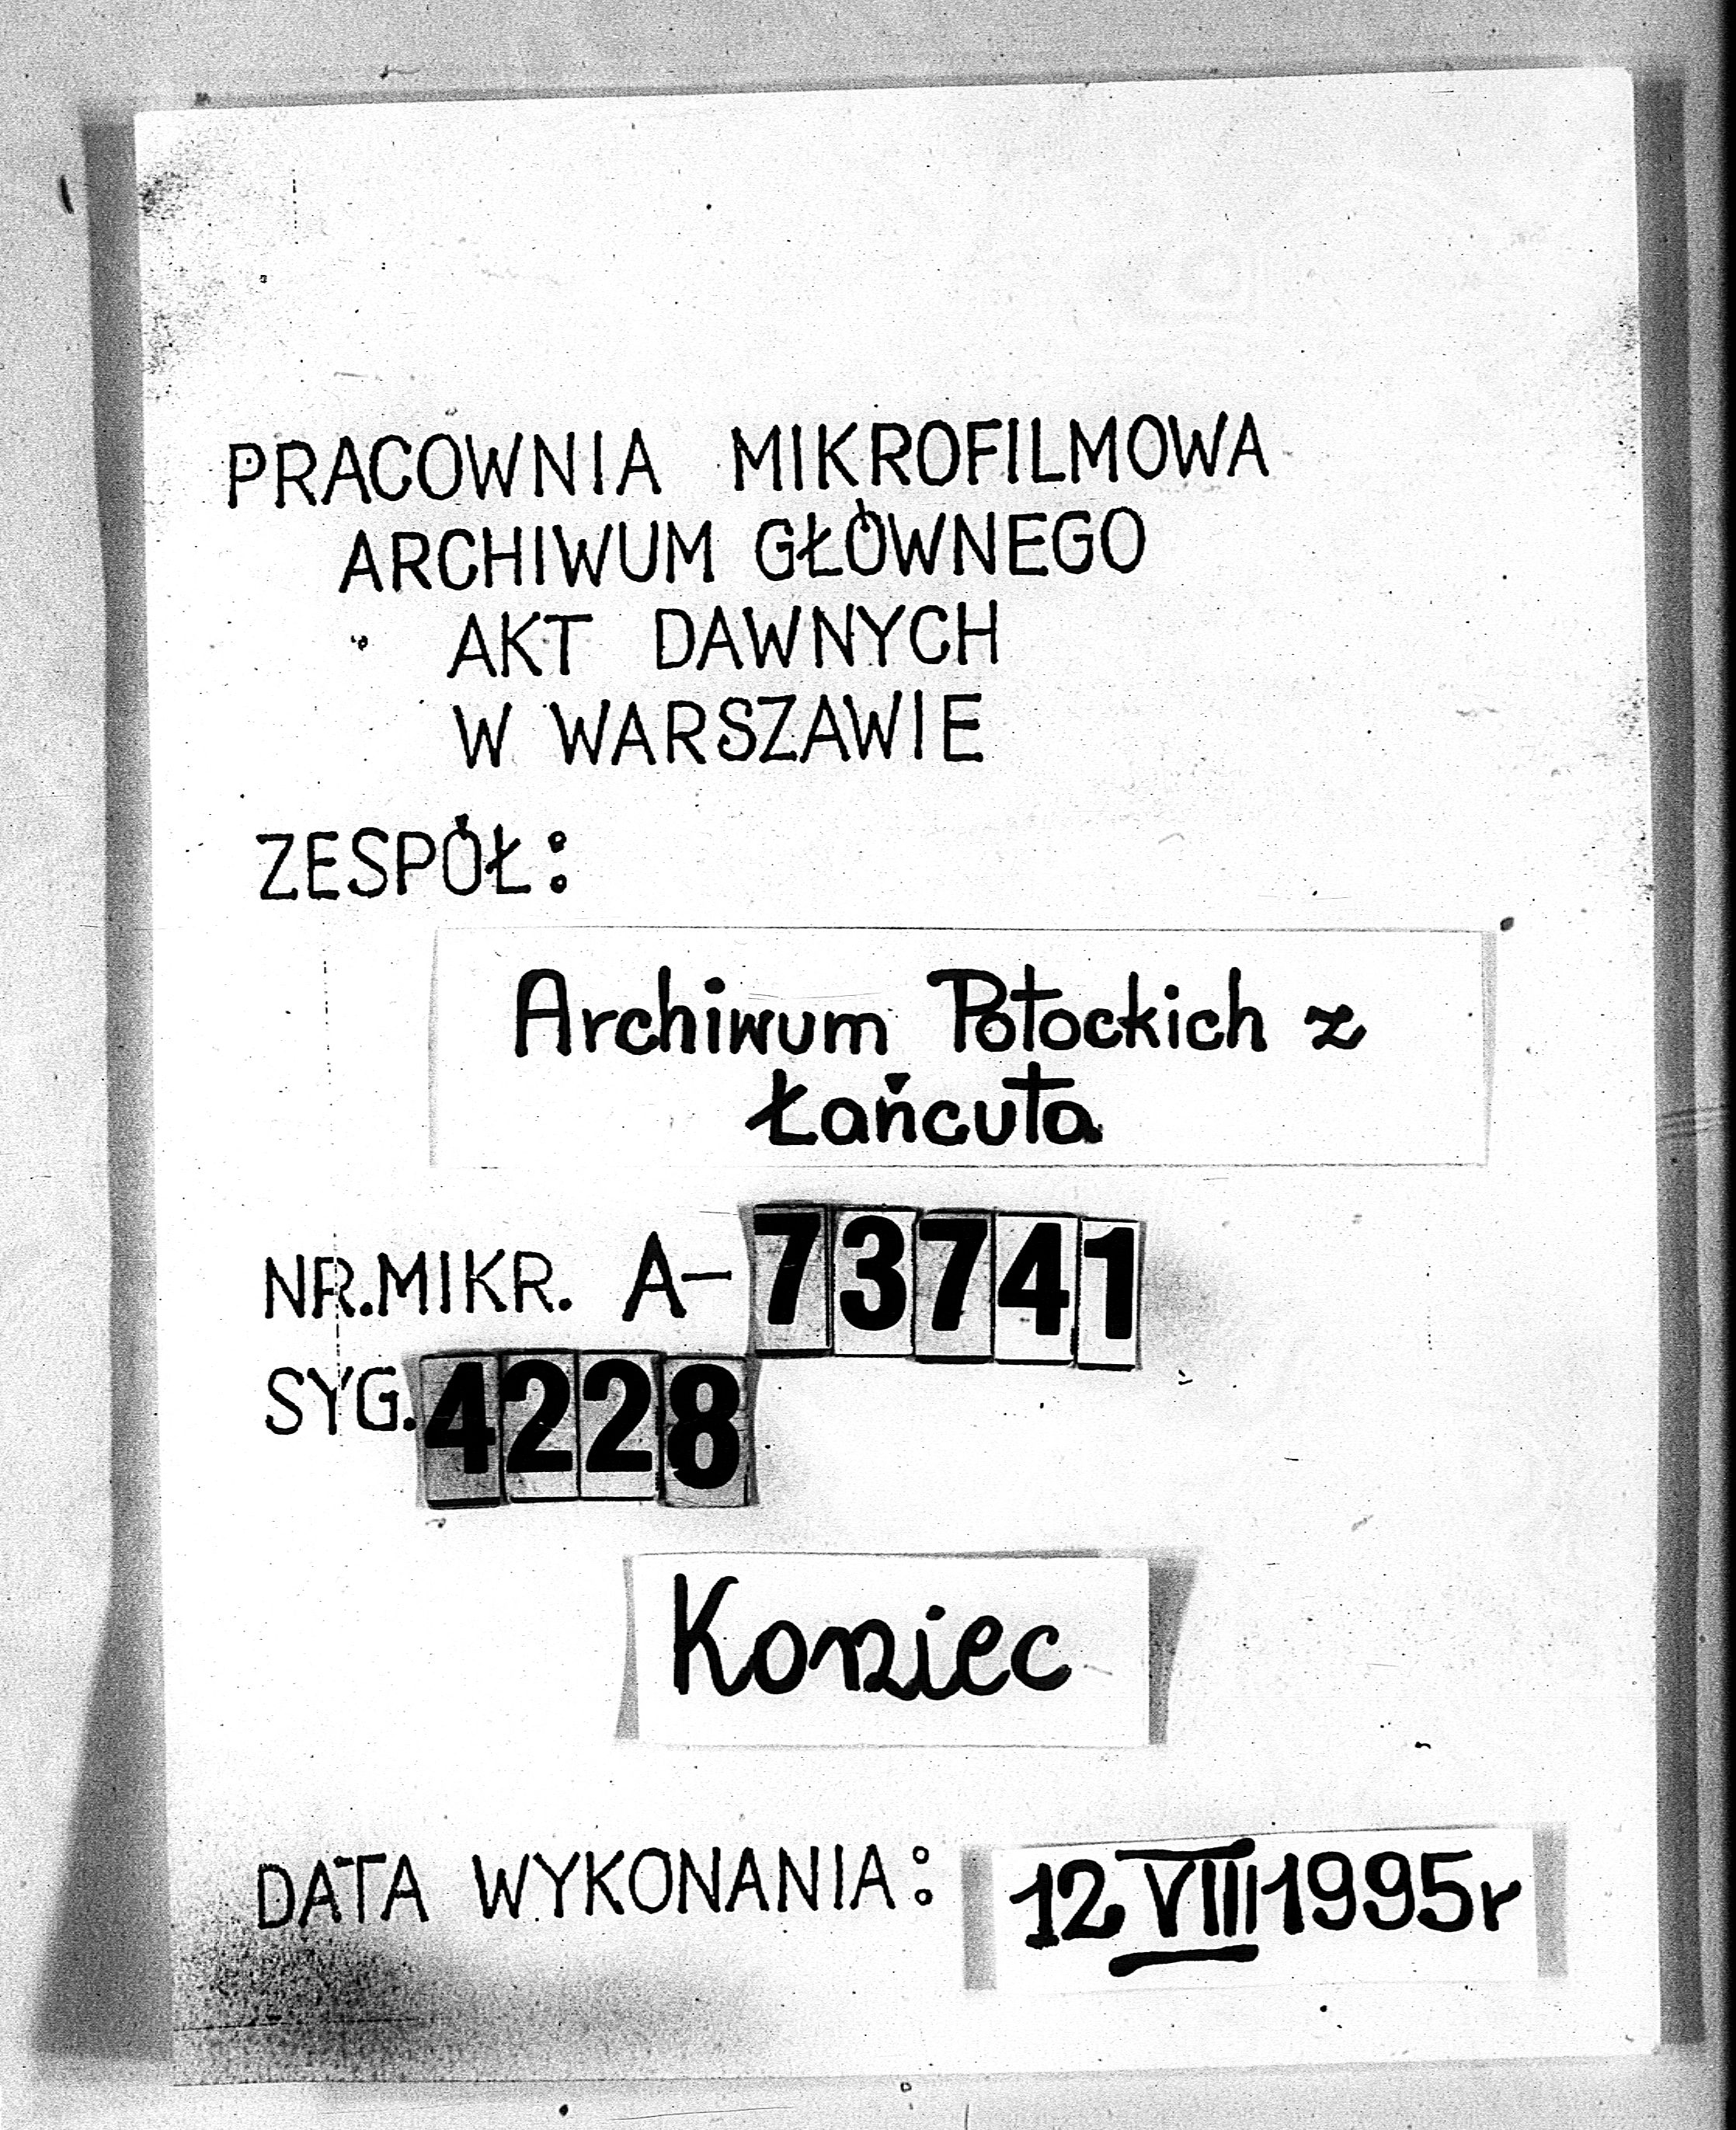 PRACOWNIA MIKROFILMOWA
ARCHIWUM GŁÓWNEGO
AKT DAWNYCH
W WARSZAWIE
ZESPÓŁ:
Archiwum Potockich z
Łańcuta
NR.MIKR. A-73741
SYG. 4228
Koniec
DATA WYKONANIA: 12 VIII 1995r